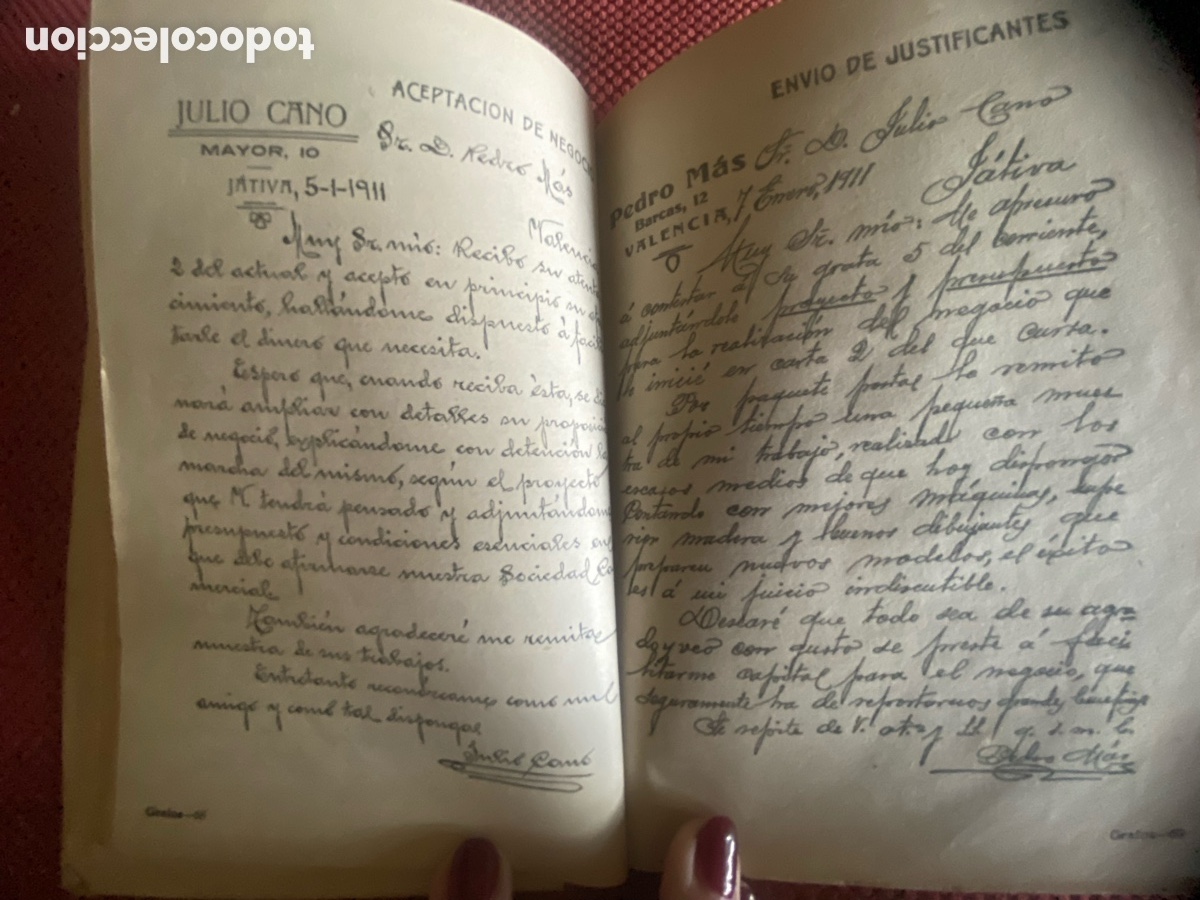 todocoleccion
ACEPTACION DE NEGOCIO
JULIO CANO
MAYOR, 10
JÁTIVA, 5-1-1911
Sr. D. Pedro Más
Valencia
Muy Sr. mío: Recibo su atenta
2 del actual y acepto en principio su
cimiento, hallándome dispuesto á facili
tarle el dinero que necesita.
Espero que, cuando reciba ésta, se dig
nará ampliar con detalles su proposición
de negocio, explicándome con detención la
marcha del mismo, según el proyecto
que V. tendrá pensado y adjuntándome
presupuesto y condiciones esenciales en
que debe afirmarse nuestra Sociedad Co
mercial.
También agradeceré me remita
muestra de sus trabajos.
Entretanto reconózcame como mil
amigo y como tal disponga
Julio Cano
Gestos—68
ENVIO DE JUSTIFICANTES
Pedro Más
Barcas, 12
VALENCIA, 7 Enero, 1911
Sr. D. Julio Cano
Játiva
Muy Sr. mío: Me apresuro
á contestar á su grata 5 del corriente,
adjuntándole proyecto y presupuesto
para la realización del negocio que
le inicié en carta 2 del que cursa.
Por paquete postal le remito
al propio tiempo una pequeña mues
tra de mi trabajo, realizado con los
escasos medios de que hoy dispongo
Contando con mejores máquinas, supe
rior madera y buenos dibujantes que
preparen nuevos modelos, el éxito
es á mi juicio indiscutible.
Desearé que todo sea de su agra
do y veo con gusto se preste á faci
litarme capital para el negocio, que
seguramente ha de reportarnos grandes beneficios
Se repite de V. at. y S. S. q. s. m. b.
Pedro Más
Gestos—69